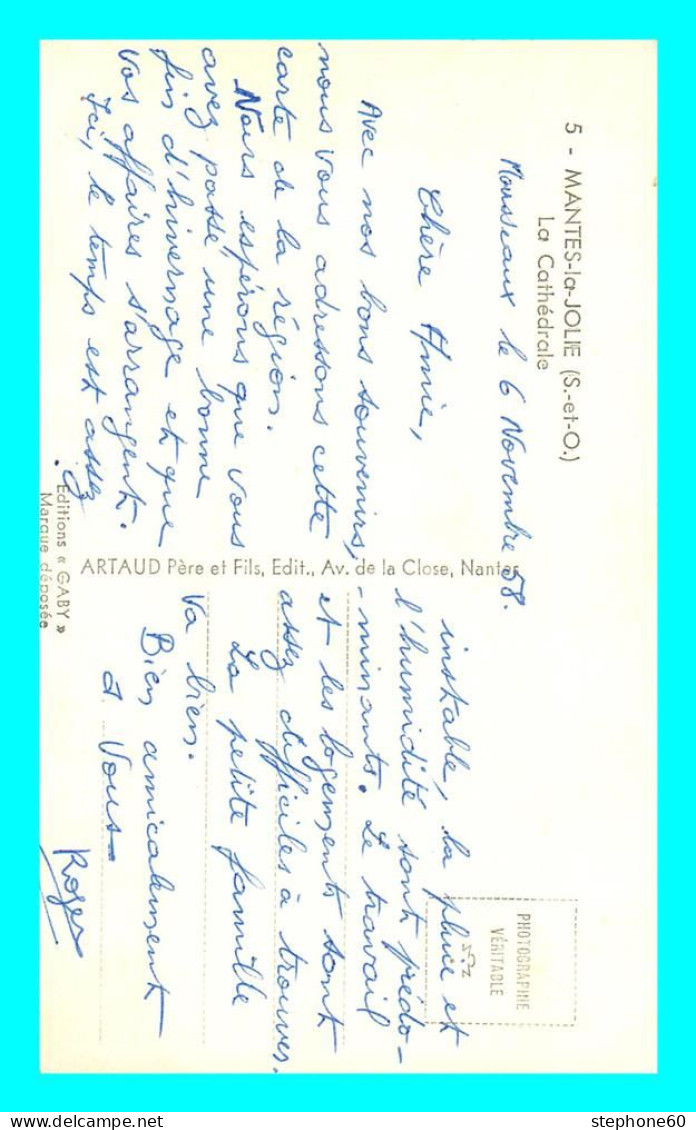 5 - MANTES-la-JOLIE (S.-et-O.)
La Cathédrale
Mousseaux le 6 Novembre 58.
Chère Amie,
Avec nos bons souvenirs,
nous vous adressons cette
carte de la région.
Nous espérons que vous
avez passé une bonne
fin d'hivernage et que
vos affaires s'arrangent.
Ici, le temps est assez
instable, la pluie et
l'humidité sont prédo-
-minants. Le travail
et les logements sont
assez difficiles à trouver.
La petite famille
va bien.
Bien amicalement
à Vous
Roger
ARTAUD Père et Fils, Edit., Av. de la Close, Nantes
Editions « GABY »
Marque déposée
PHOTOGRAPHIE
VÉRITABLE
stephone60